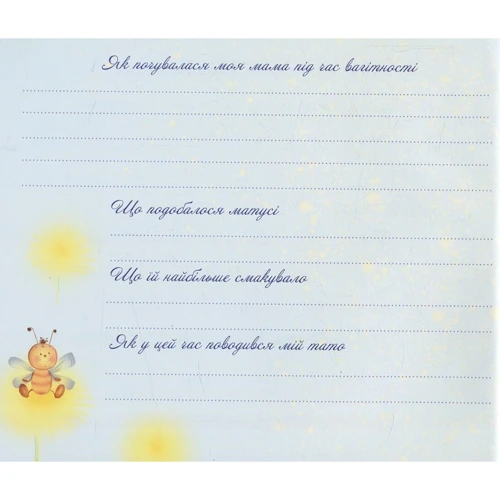 Як почувалася моя мама під час вагітності
Що подобалося матусі
Що їй найбільше смакувало
Як у цей час поводився мій тато